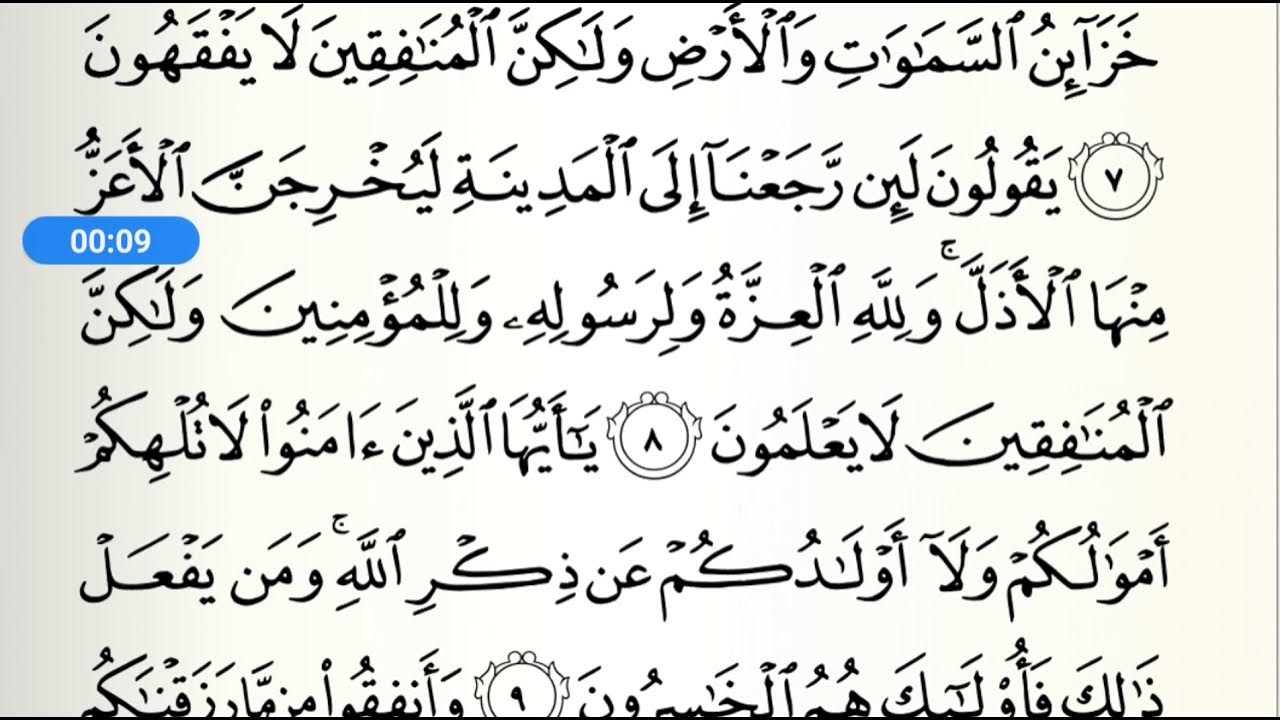 خَزَآئِنُ ٱلسَّمَـٰوَٰتِ وَٱلْأَرْضِ وَلَـٰكِنَّ ٱلْمُنَـٰفِقِينَ لَا يَفْقَهُونَ
٧ يَقُولُونَ لَئِن رَّجَعْنَآ إِلَى ٱلْمَدِينَةِ لَيُخْرِجَنَّ ٱلْأَعَزُّ
00:09
مِنْهَا ٱلْأَذَلَّ ۚ وَلِلَّهِ ٱلْعِزَّةُ وَلِرَسُولِهِۦ وَلِلْمُؤْمِنِينَ وَلَـٰكِنَّ
ٱلْمُنَـٰفِقِينَ لَا يَعْلَمُونَ ٨ يَـٰٓأَيُّهَا ٱلَّذِينَ ءَامَنُوا۟ لَا تُلْهِكُمْ
أَمْوَٰلُكُمْ وَلَآ أَوْلَـٰدُكُمْ عَن ذِكْرِ ٱللَّهِ ۚ وَمَن يَفْعَلْ
ذَٰلِكَ فَأُو۟لَـٰٓئِكَ هُمُ ٱلْخَـٰسِرُونَ ٩ وَأَنفِقُوا۟ مِن مَّا رَزَقْنَـٰكُم